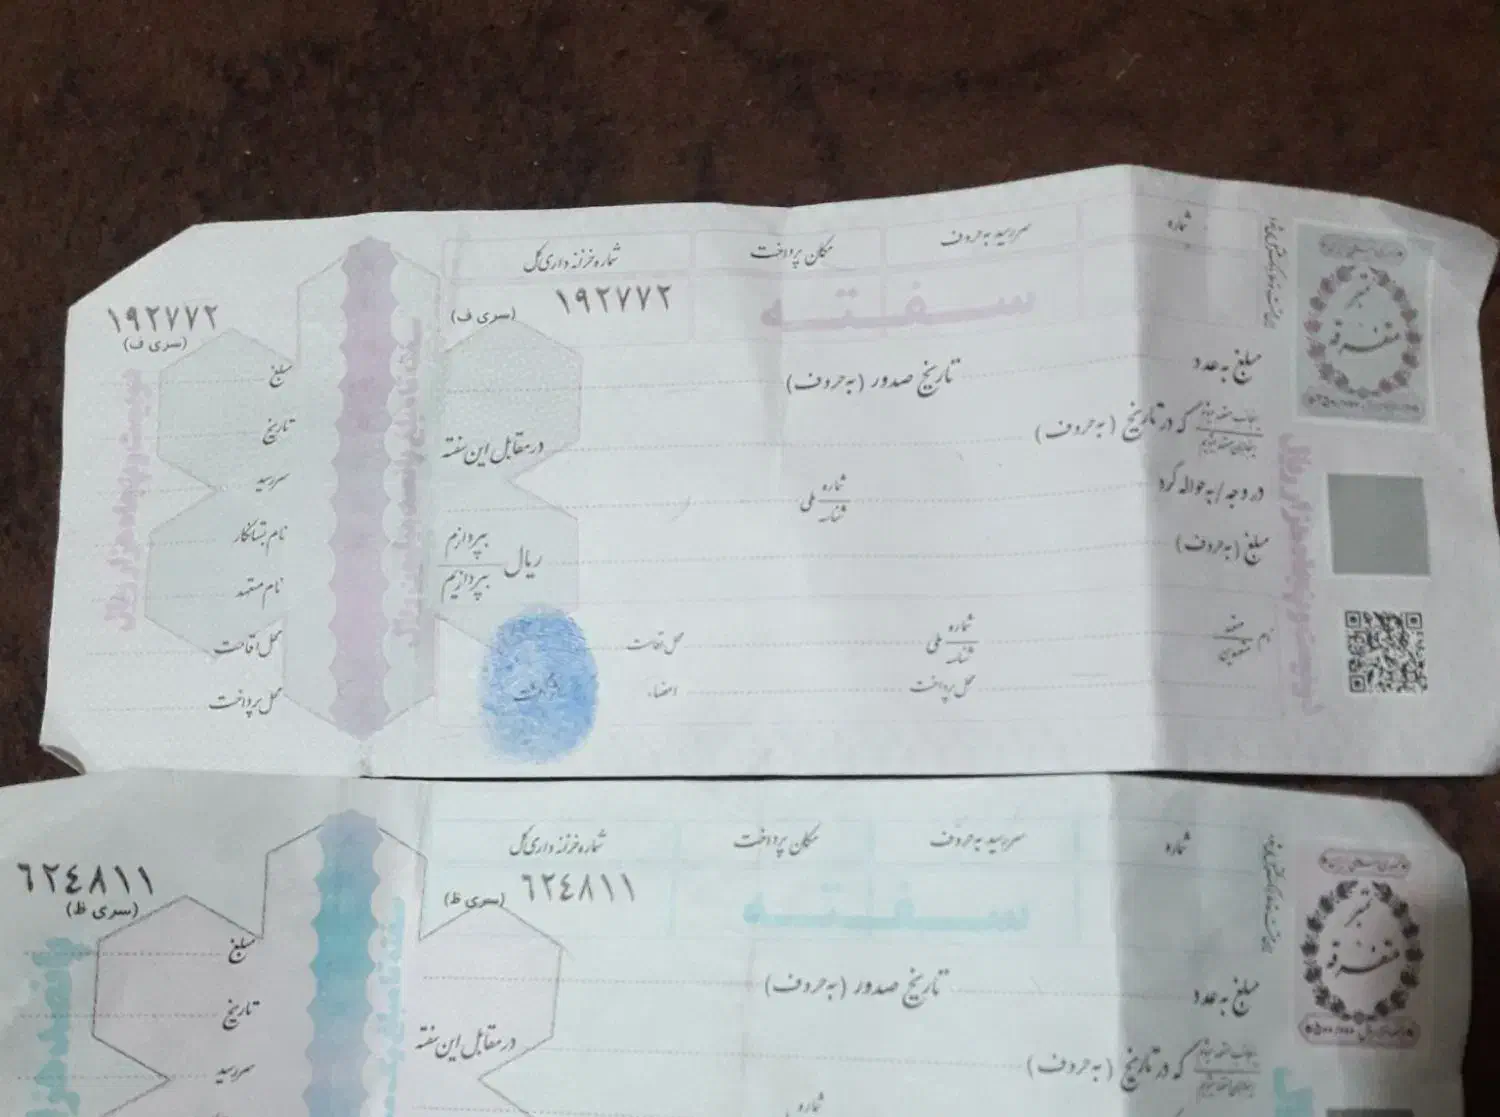 شماره
سررسید به حروف
مکان پرداخت
شماره خزانه داری کل
۱۹۲۷۷۲
(سری ف)
سفته
مبلغ به عدد
تاریخ صدور (به حروف)
که در تاریخ (به حروف)
در مقابل این سفته
در وجه / به حواله کرد
شماره
شناسه
ملی
مبلغ (به حروف)
ریال
بپردازم
بپردازیم
نام
متعهد
متعهدین
شماره
شناسه
ملی
محل اقامت
محل پرداخت
امضاء
تمبر
متفرقه
۱۹۲۷۷۲
(سری ف)
مبلغ
تاریخ
سررسید
نام بستانکار
نام متعهد
محل اقامت
محل پرداخت
دویست و پنجاه هزار ریال
شماره
سررسید به حروف
مکان پرداخت
شماره خزانه داری کل
٦٢٤٨١١
(سری ظ)
سفته
مبلغ به عدد
تاریخ صدور (به حروف)
که در تاریخ (به حروف)
در مقابل این سفته
شماره
تمبر
متفرقه
٦٢٤٨١١
(سری ظ)
مبلغ
تاریخ
سررسید